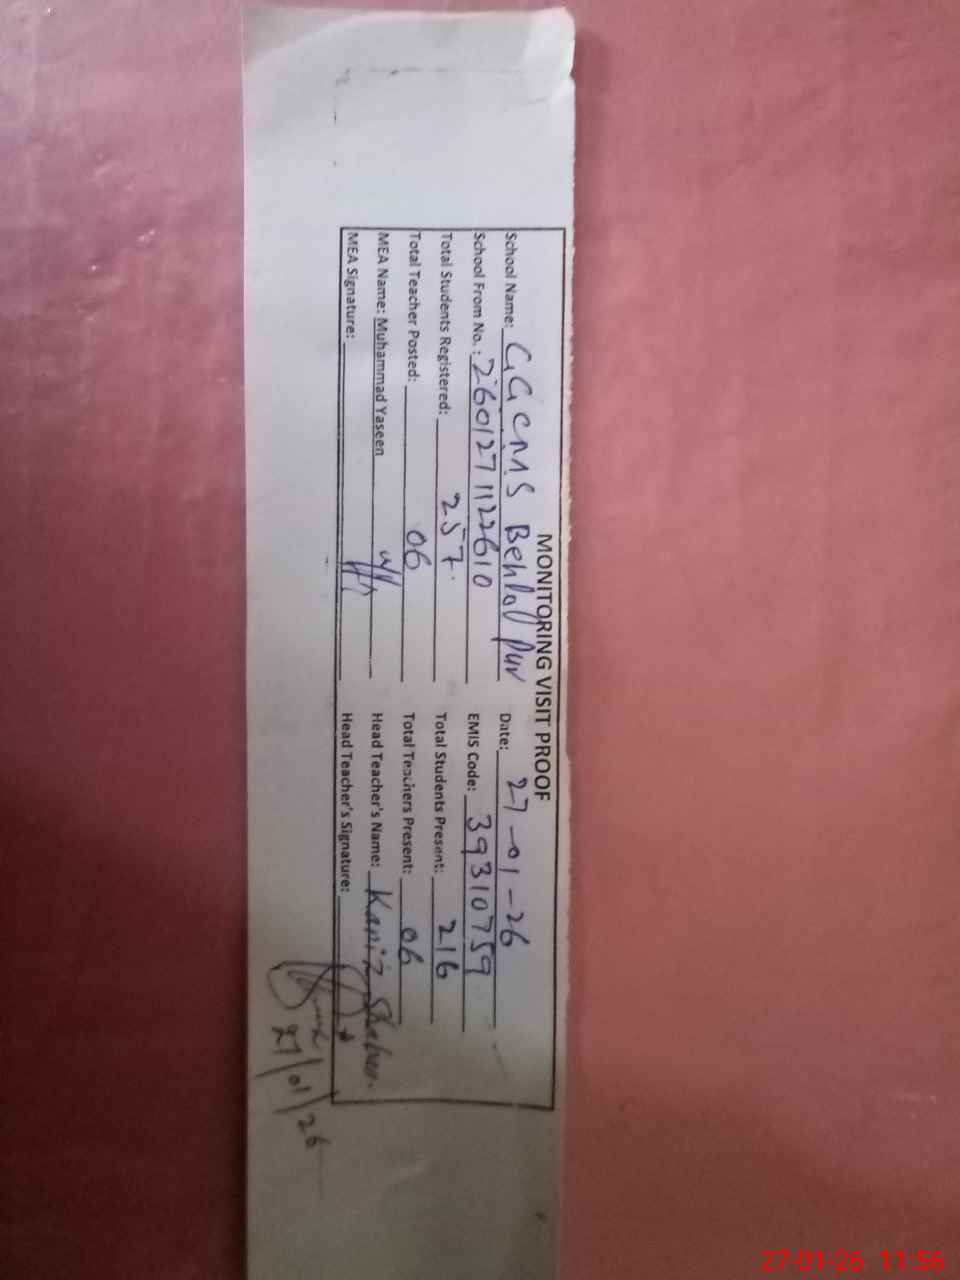 MONITORING VISIT PROOF
School Name: GGCMS Behlol Pur Date: 27-01-26
School From No.: 2601271122610 EMIS Code: 39310759
Total Students Registered: 257. Total Students Present: 216
Total Teacher Posted: 06 Total Teachers Present: 06
MEA Name: Muhammad Yaseen Head Teacher's Name: Kaniz
MEA Signature: Head Teacher's Signature:
27/01/26
27-01-26 11:56